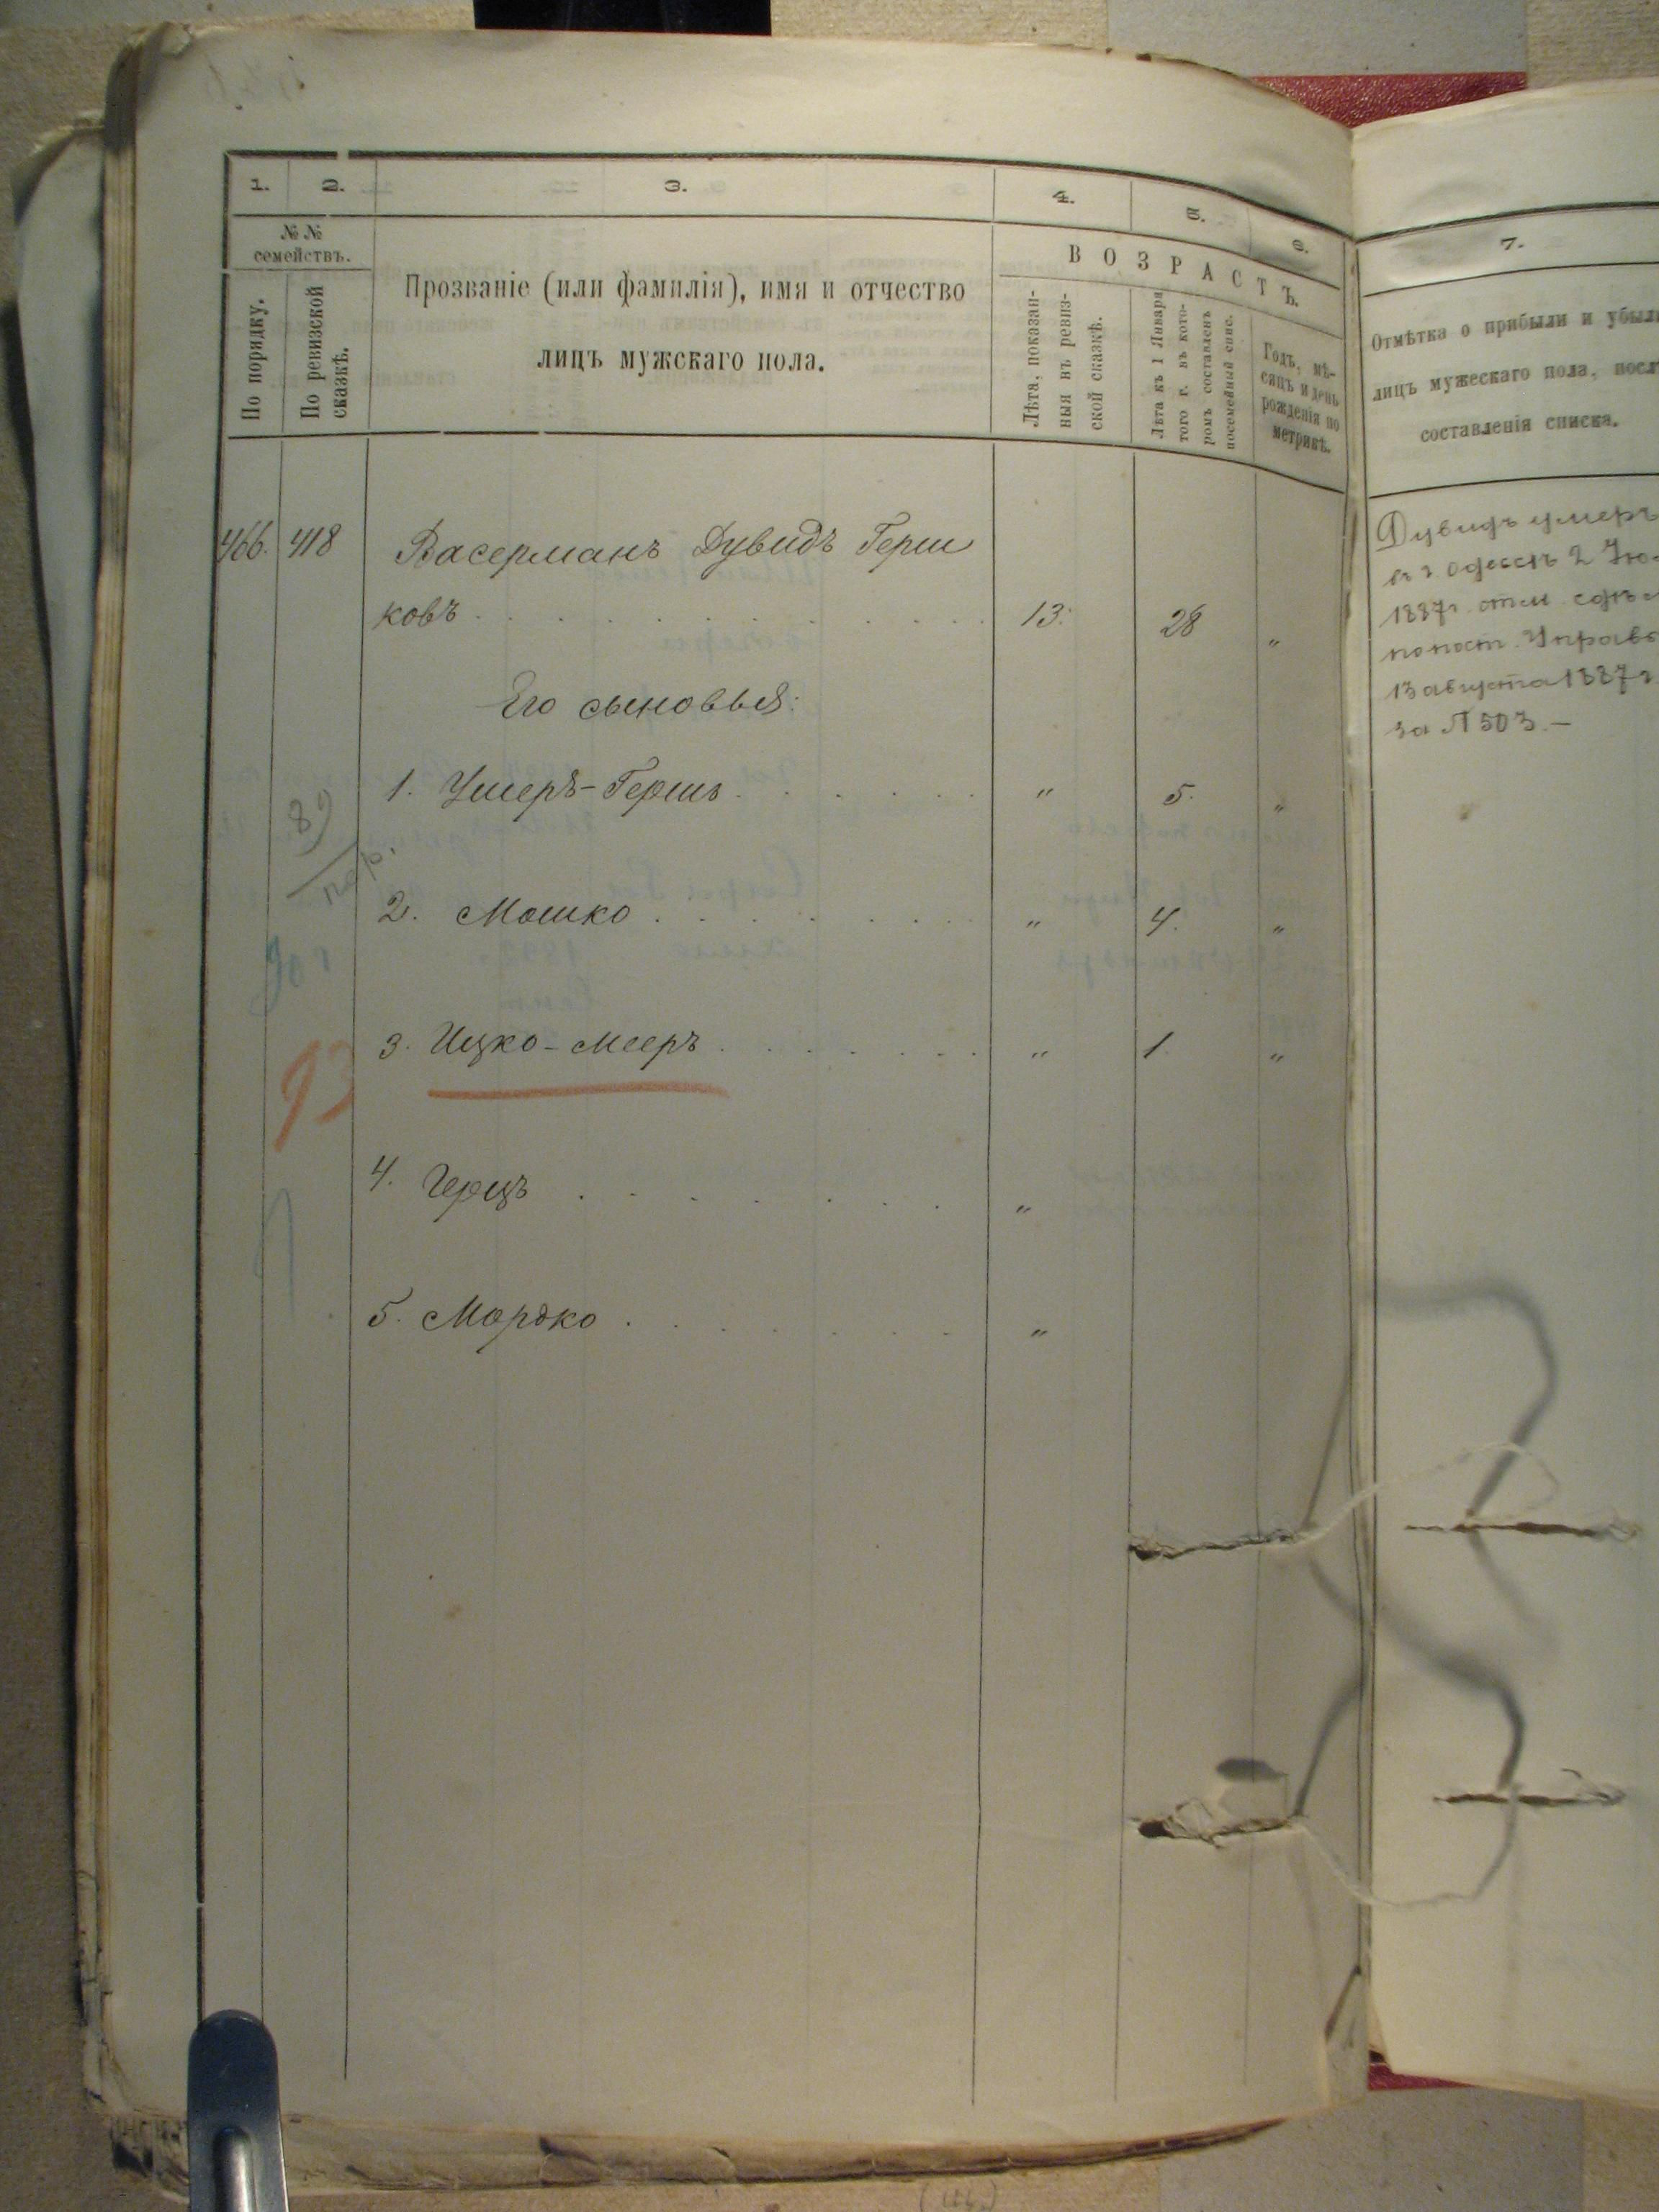 1. 2. 3. 4. 5. 6.
№ №
семействъ.
По порядку.
По ревизской
сказкѣ.
Прозваніе (или фамилія), имя и отчество
лицъ мужскаго пола.
ВОЗРАСТЪ.
Лѣта, показан-
ныя въ ревиз-
ской сказкѣ.
Лѣта къ 1 Января
того г. въ кото-
ромъ составленъ
посемейный спис.
Годъ, мѣ-
сяцъ и день
рожденія по
метрикѣ.
466. 418 Васерманъ Дувидъ Герш
ковъ . . . . . . . . . . 13. 28 "
Его сыновья:
1. Ушеръ-Гершъ . . . . . . " 5. "
89
пер.
2. Мошко . . . . . . . " 4. "
90 г
3. Ицко-Мееръ . . . . . . . " 1. "
93
4. Герцъ . . . . . . . . "
5. Мордко . . . . . . . . "
7.
Отмѣтка о прибыли и убыли
лицъ мужескаго пола, посл
составленія списка.
Дувидъ умеръ
въ г Одессѣ 2 Iю
1887г. отм. сдѣл
по пост. Управы
13 августа 1887 г
за № 503. —